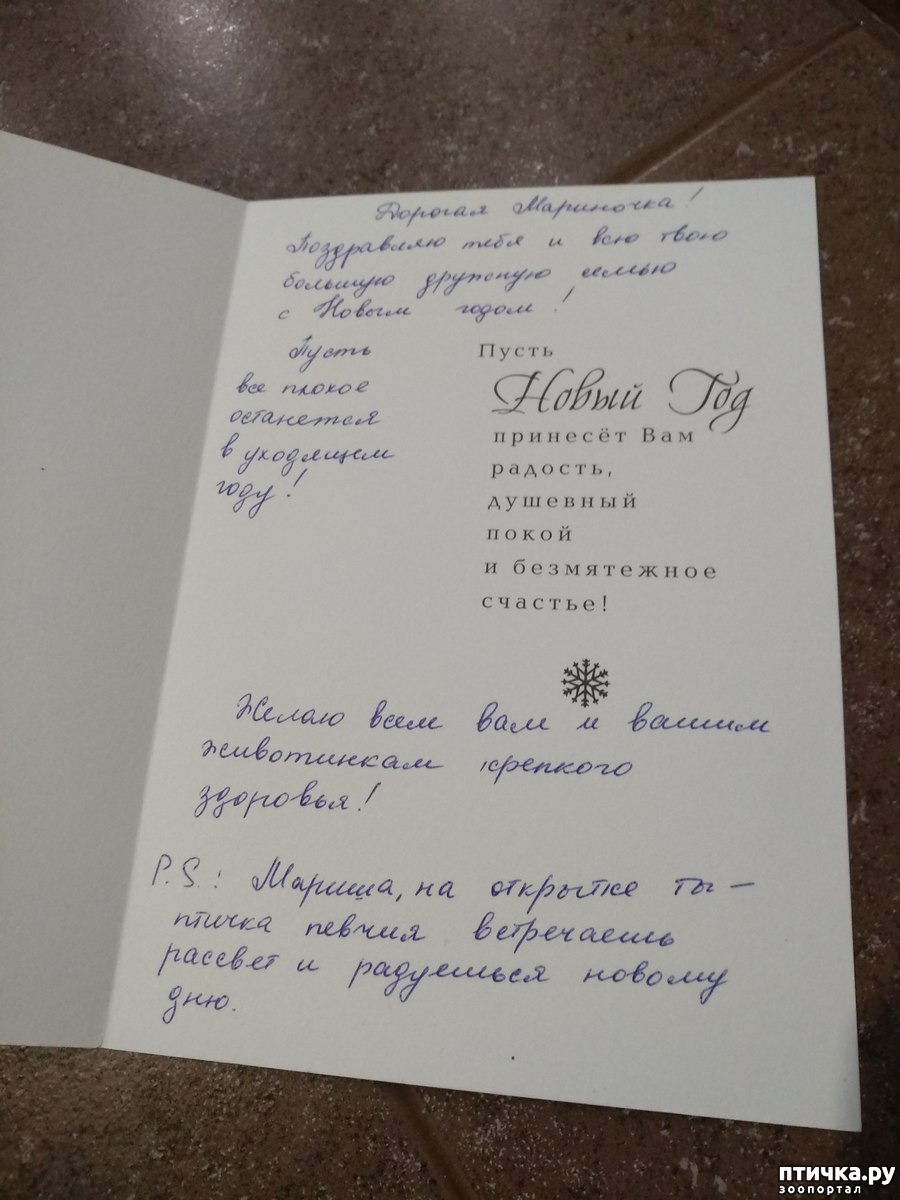 Дорогая Мариночка!
Поздравляю тебя и всю твою
большую дружную семью
с Новым годом!
Пусть
все плохое
останется
в уходящем
году!
Пусть
Новый Год
принесёт Вам
радость,
душевный
покой
и безмятежное
счастье!
Желаю всем вам и вашим
животинкам крепкого
здоровья!
P.S.: Мариша, на открытке ты –
птичка певчия встречаешь
рассвет и радуешься новому
дню.
птичка.ру
зоопортал